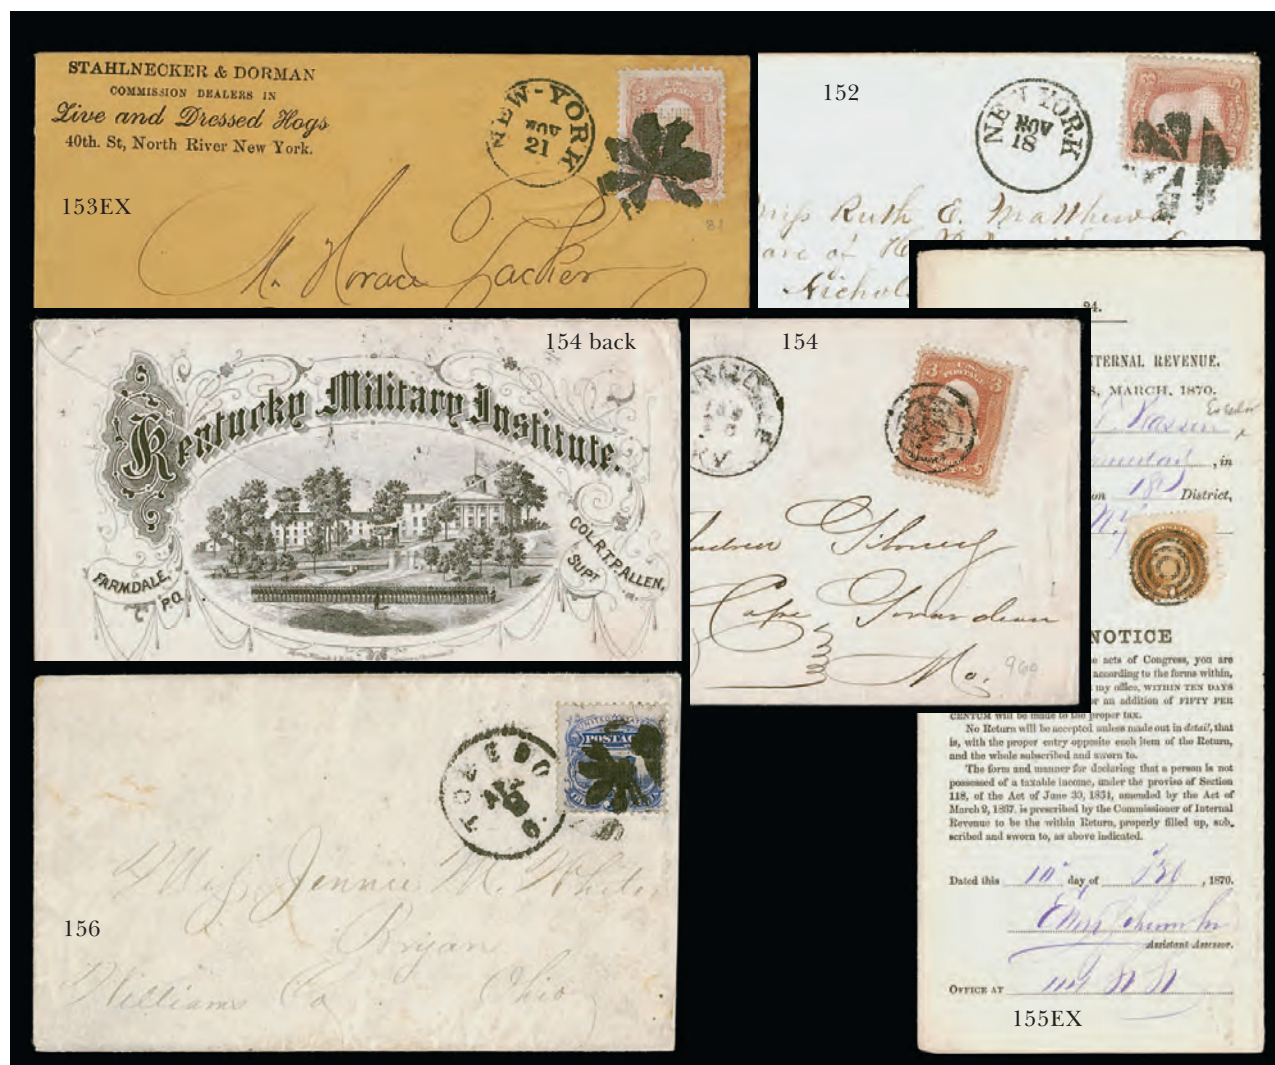 STAHLNECKER & DORMAN
COMMISSION DEALERS IN
Live and Dressed Hogs
40th. St, North River New York.
153EX
NEW-YORK
NOV
21
3 3
81
Mr. Horace Tacker
152
NEW YORK
NOV
18
Miss Ruth E. Matthews
are of H
Nichol
154 back
Kentucky Military Institute.
FARMDALE,
P.O.
COL. R.T.P. ALLEN,
SUPT
154
KY
3 3
U.S.
POSTAGE
Andrew
Cape Girardeau
Mo.
960
24.
TERNAL REVENUE.
S, MARCH, 1870.
, in
on 18 District,
N.Y.
NOTICE
e acts of Congress, you are
according to the forms within,
my office, WITHIN TEN DAYS
or an addition of FIFTY PER
CENTUM will be made to the proper tax.
No Return will be accepted unless made out in detail, that
is, with the proper entry opposite each item of the Return,
and the whole subscribed and sworn to.
The form and manner for declaring that a person is not
possessed of a taxable income, under the proviso of Section
118, of the Act of June 30, 1864, amended by the Act of
March 2, 1867, is prescribed by the Commissioner of Internal
Revenue to be the within Return, properly filled up, sub-
scribed and sworn to, as above indicated.
Dated this 10 day of , 1870.
Assistant Assessor.
OFFICE AT
155EX
TOLEDO
O.
UNITED STATES
POSTAGE
Miss Jennie M. White
Bryan
Williams Co Ohio
156